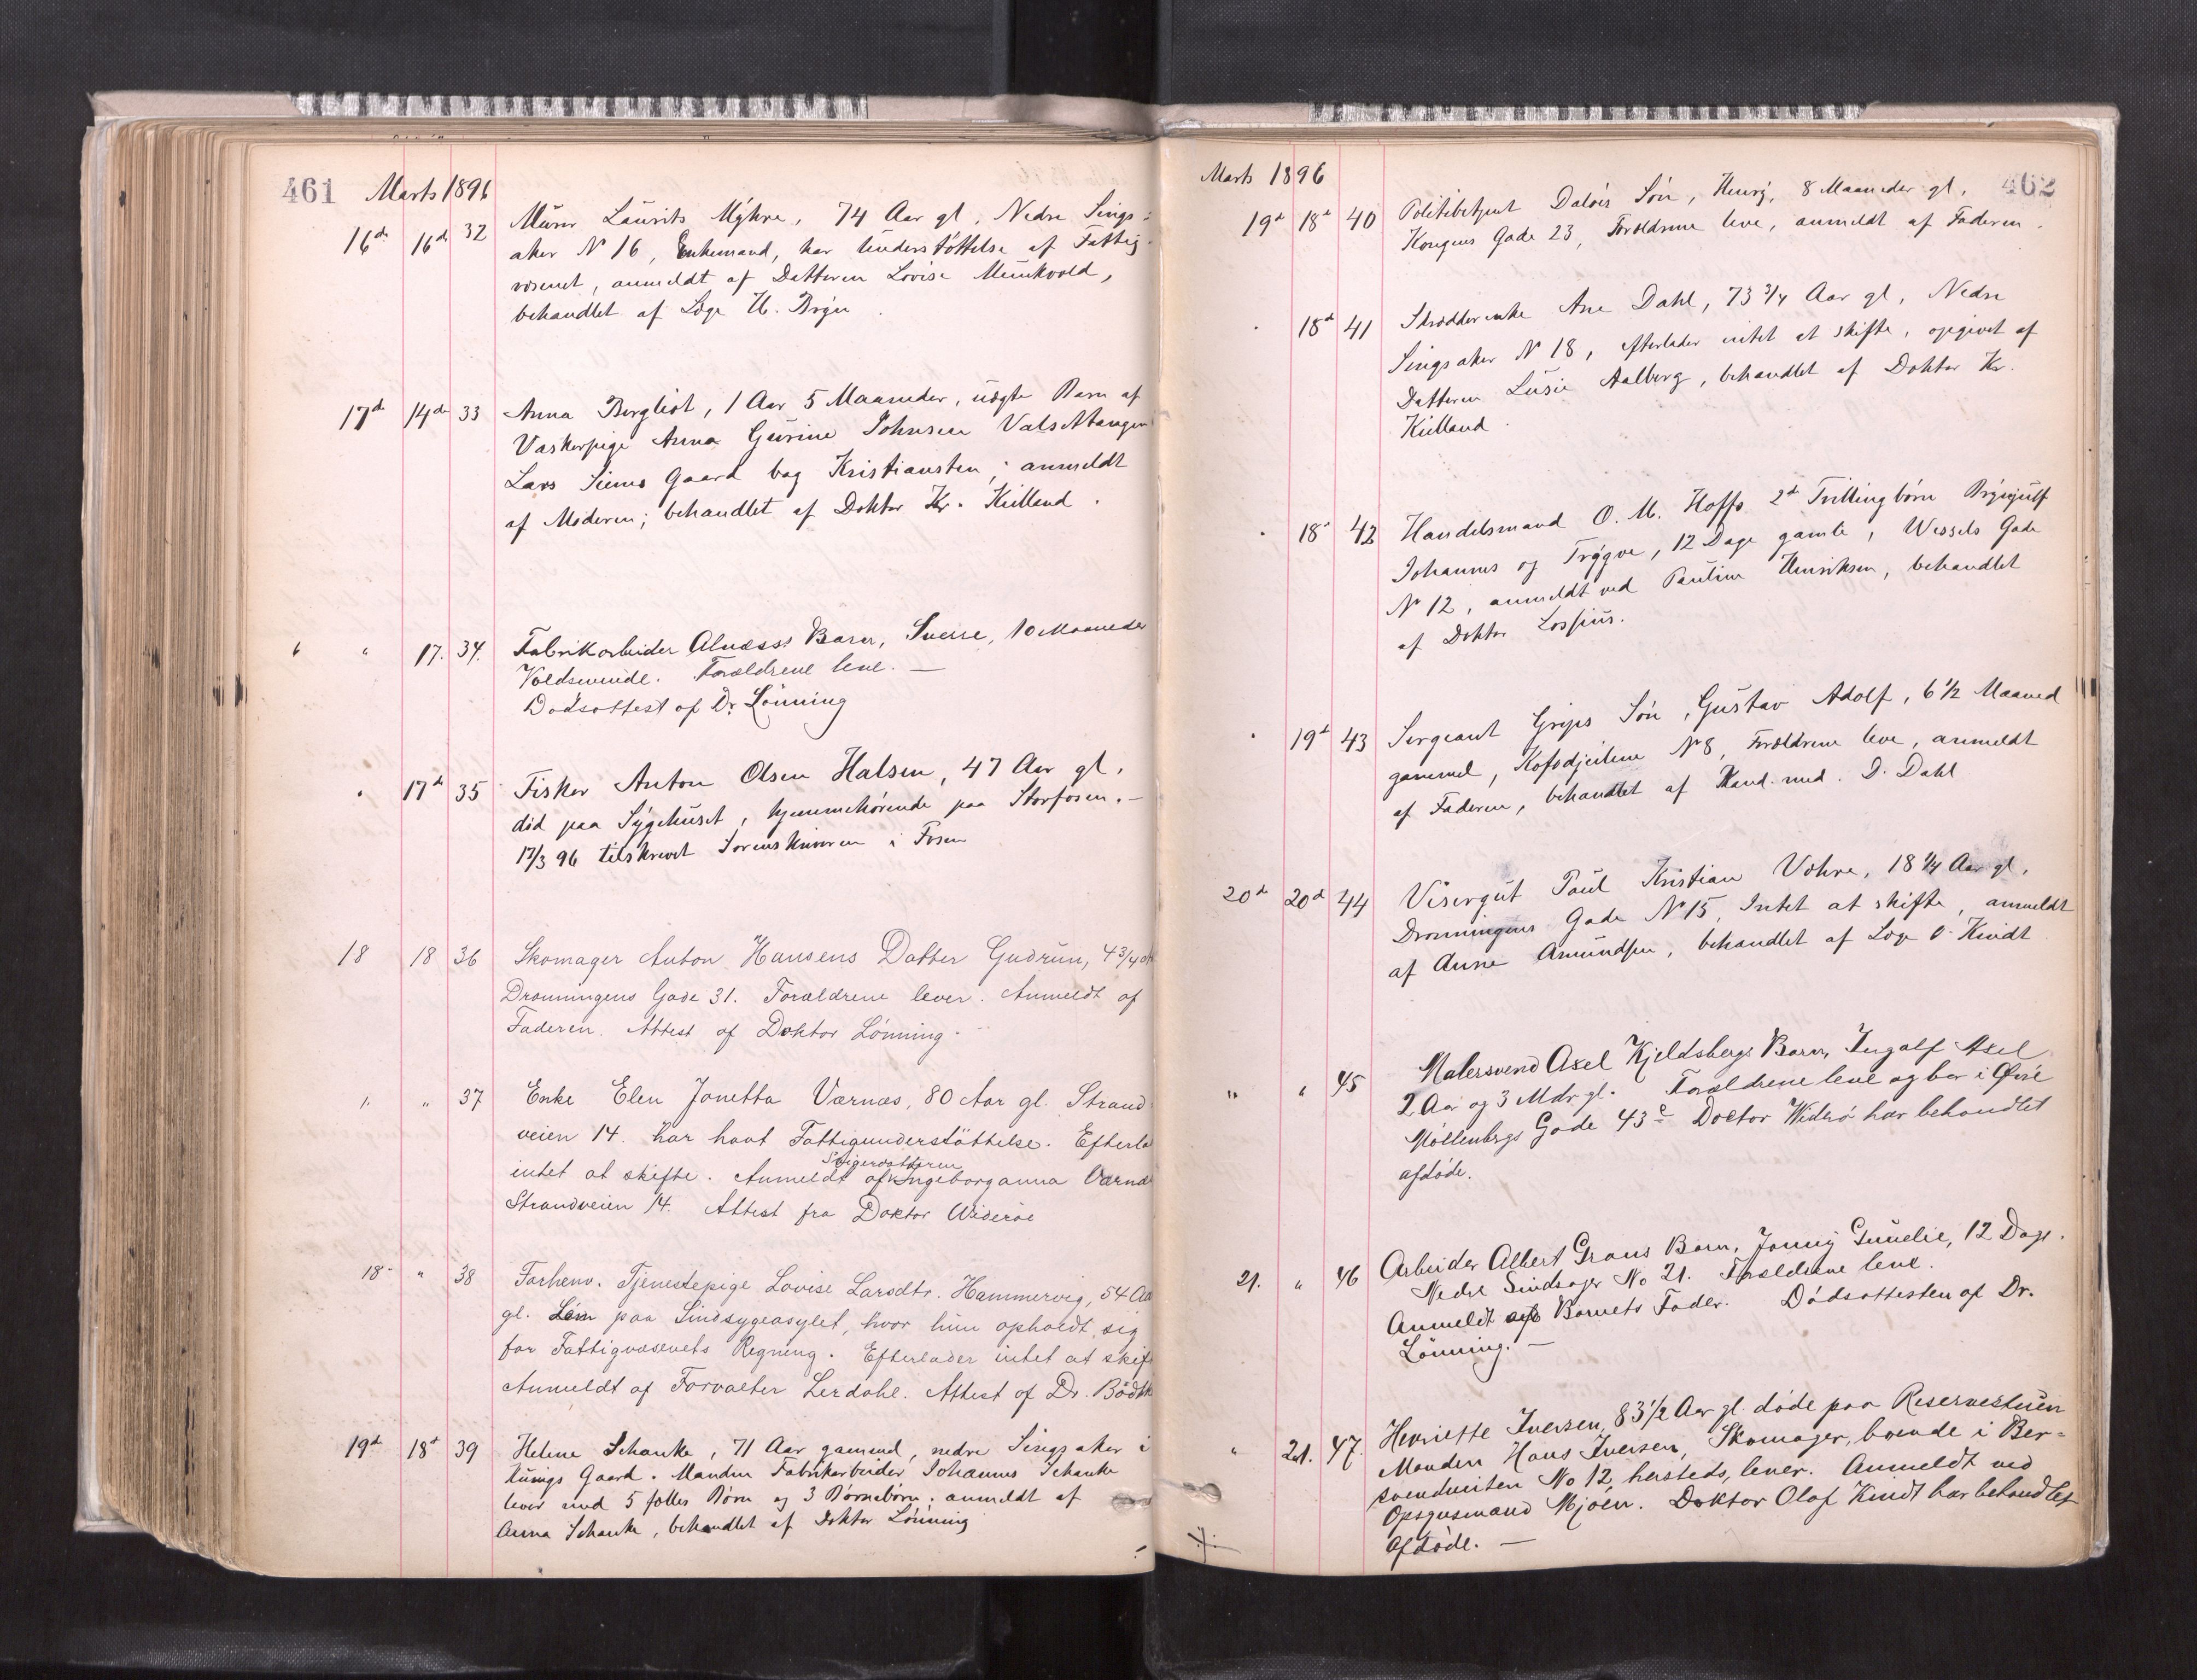 461 Marts 1896
16de 16de 32 Murer Laurits Myhre, 74 Aar gl, Nedre Sings-
aker N 16, Enkemand, har Understøttelse af Fattig-
væsenet, anmeldt af Datteren Lovise Munkvold,
behandlet af Læge H. Bryn
17de 14de 33 Anna Bergliot, 1 Aar 5 Maaneder, uægte Barn af
Vaskerpige Anna Gurine Johnsen Valsettangen
Lars Siems Gaard bag Kristiansten; anmeldt
af Moderen; behandlet af Doktor Kr. Kielland.
" 17. 34. Fabrikarbeider Alnæss's Barn, Sverre, 10 Maaneder
Voldsminde. Forældrene leve. —
Dødsattest af Dr. Lönning
" 17de 35 Fisker Anton Olsen Halsen, 47 Aar gl.
död paa Sygehuset, hjemmehørende paa Storfosen. —
17/3 96 tilskrevet Sorenskriveren i Fosen
18 18 36 Skomager Anton Hansens Datter Gudrun, 4 3/4 A
Dronningens Gade 31. Forældrene lever. Anmeldt af
Faderen. Attest af Doktor Lönning.
" " 37 Enke Elen Jonetta Værnæs, 80 Aar gl. Strand-
veien 14. har havt Fattigunderstöttelse. Efterla
intet at skifte. Anmeldt af Svigerdatteren Ingeborganna Værnæ
Strandveien 14. Attest fra Doktor Wideröe
18 " 38 Forhenv. Tjenestepige Lovise Larsdtr. Hammervig, 54 Aa
gl. paa Sindsygeasylet, hvor hun opholdt sig
for Fattigvæsenets Regning. Efterlader intet at skif
Anmeldt af Forvalter Lerdahl. Attest af Dr. Bödtk
19de 18de 39 Helene Schanke, 71 Aar gammel, nedre Singsaker i
Kunigs Gaard. Manden Fabrikarbeider Johannes Schanke
lever med 5 fælles Börn og 3 Börnebörn; anmeldt af
Anna Schanke, behandlet af Doktor Lönning
Marts 1896 462
19de 18de 40 Politibetjent Daløes Sön, Henry, 8 Maaneder gl,
Kongens Gade 23, Forældrene leve, anmeldt af Faderen.
" 18de 41 Skrædderenke Ane Dahl, 73 3/4 Aar gl, Nedre
Singsaker N 18, efterlader intet at skifte, opgivet af
Datteren Lusie Aalberg, behandlet af Doktor Kr.
Kielland.
" 18de 42 Handelsmand O. M. Hoffs 2de Tvillingbörn Brynjulf
Johannes og Trygve, 12 Dage gamle, Wessels Gade
N 12, anmeldt ved Pauline Henriksen, behandlet
af Doktor Lossius.
" 19de 43 Sergeant Grips Sön, Gustav Adolf, 6 1/2 Maaned
gammel, Kofodjeilene N 8, Forældrene leve, anmeldt
af Faderen, behandlet af Kand. med. D. Dahl
20de 20de 44 Visergut Paul Kristian Vohre, 18 1/4 Aar gl.
Dronningens Gade N 15, Intet at skifte, anmeldt
af Anne Amundsen, behandlet af Læge O. Kindt
" " 45 Malersvend Axel Kjeldsbergs Barn, Ingolf Axel
2 Aar og 3 Mdr gl. Forældrene leve og bor i Øvre
Möllenbergs Gade 43c Doctor Widerö har behandlet
afdöde.
21. " 46 Arbeider Albert Grans Barn, Jonny Emelie, 12 Dage.
Nedre Sindsager No 21. Forældrene leve.
Anmeldt af Barnets Fader. Dödsattesten af Dr.
Lönning. —
" 21. 47. Henriette Iversen, 83 1/2 Aar gl. döde paa Reservestuen
Manden Hans Iversen, Skomager, boende i Ber-
svendveiten No 12, hersteds, lever. Anmeldt ved
Opsynsmand Mjöen. Doktor Olaf Kindt har behandlet
afdöde. —